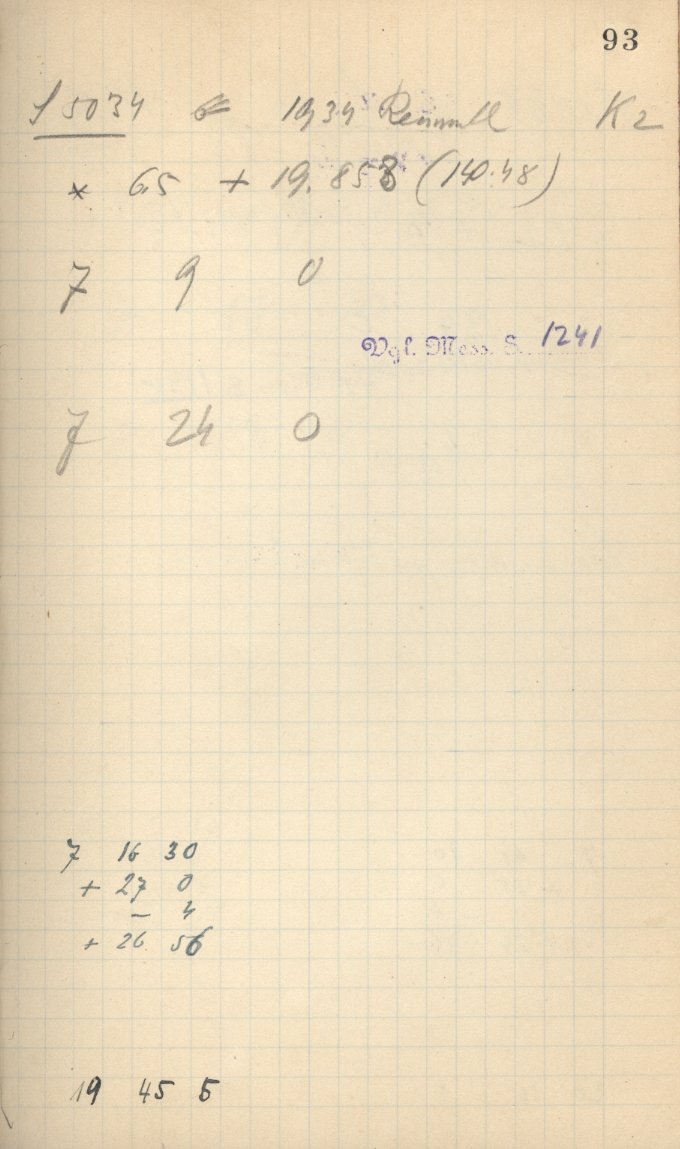 93
S 5034 1934 K 2
* 65 + 19.858 (140.48)
7 9 0
Vgl. Mess. S. 1241
7 24 0
7 16 30
+ 27 0
- 4
+ 26 56
19 45 5